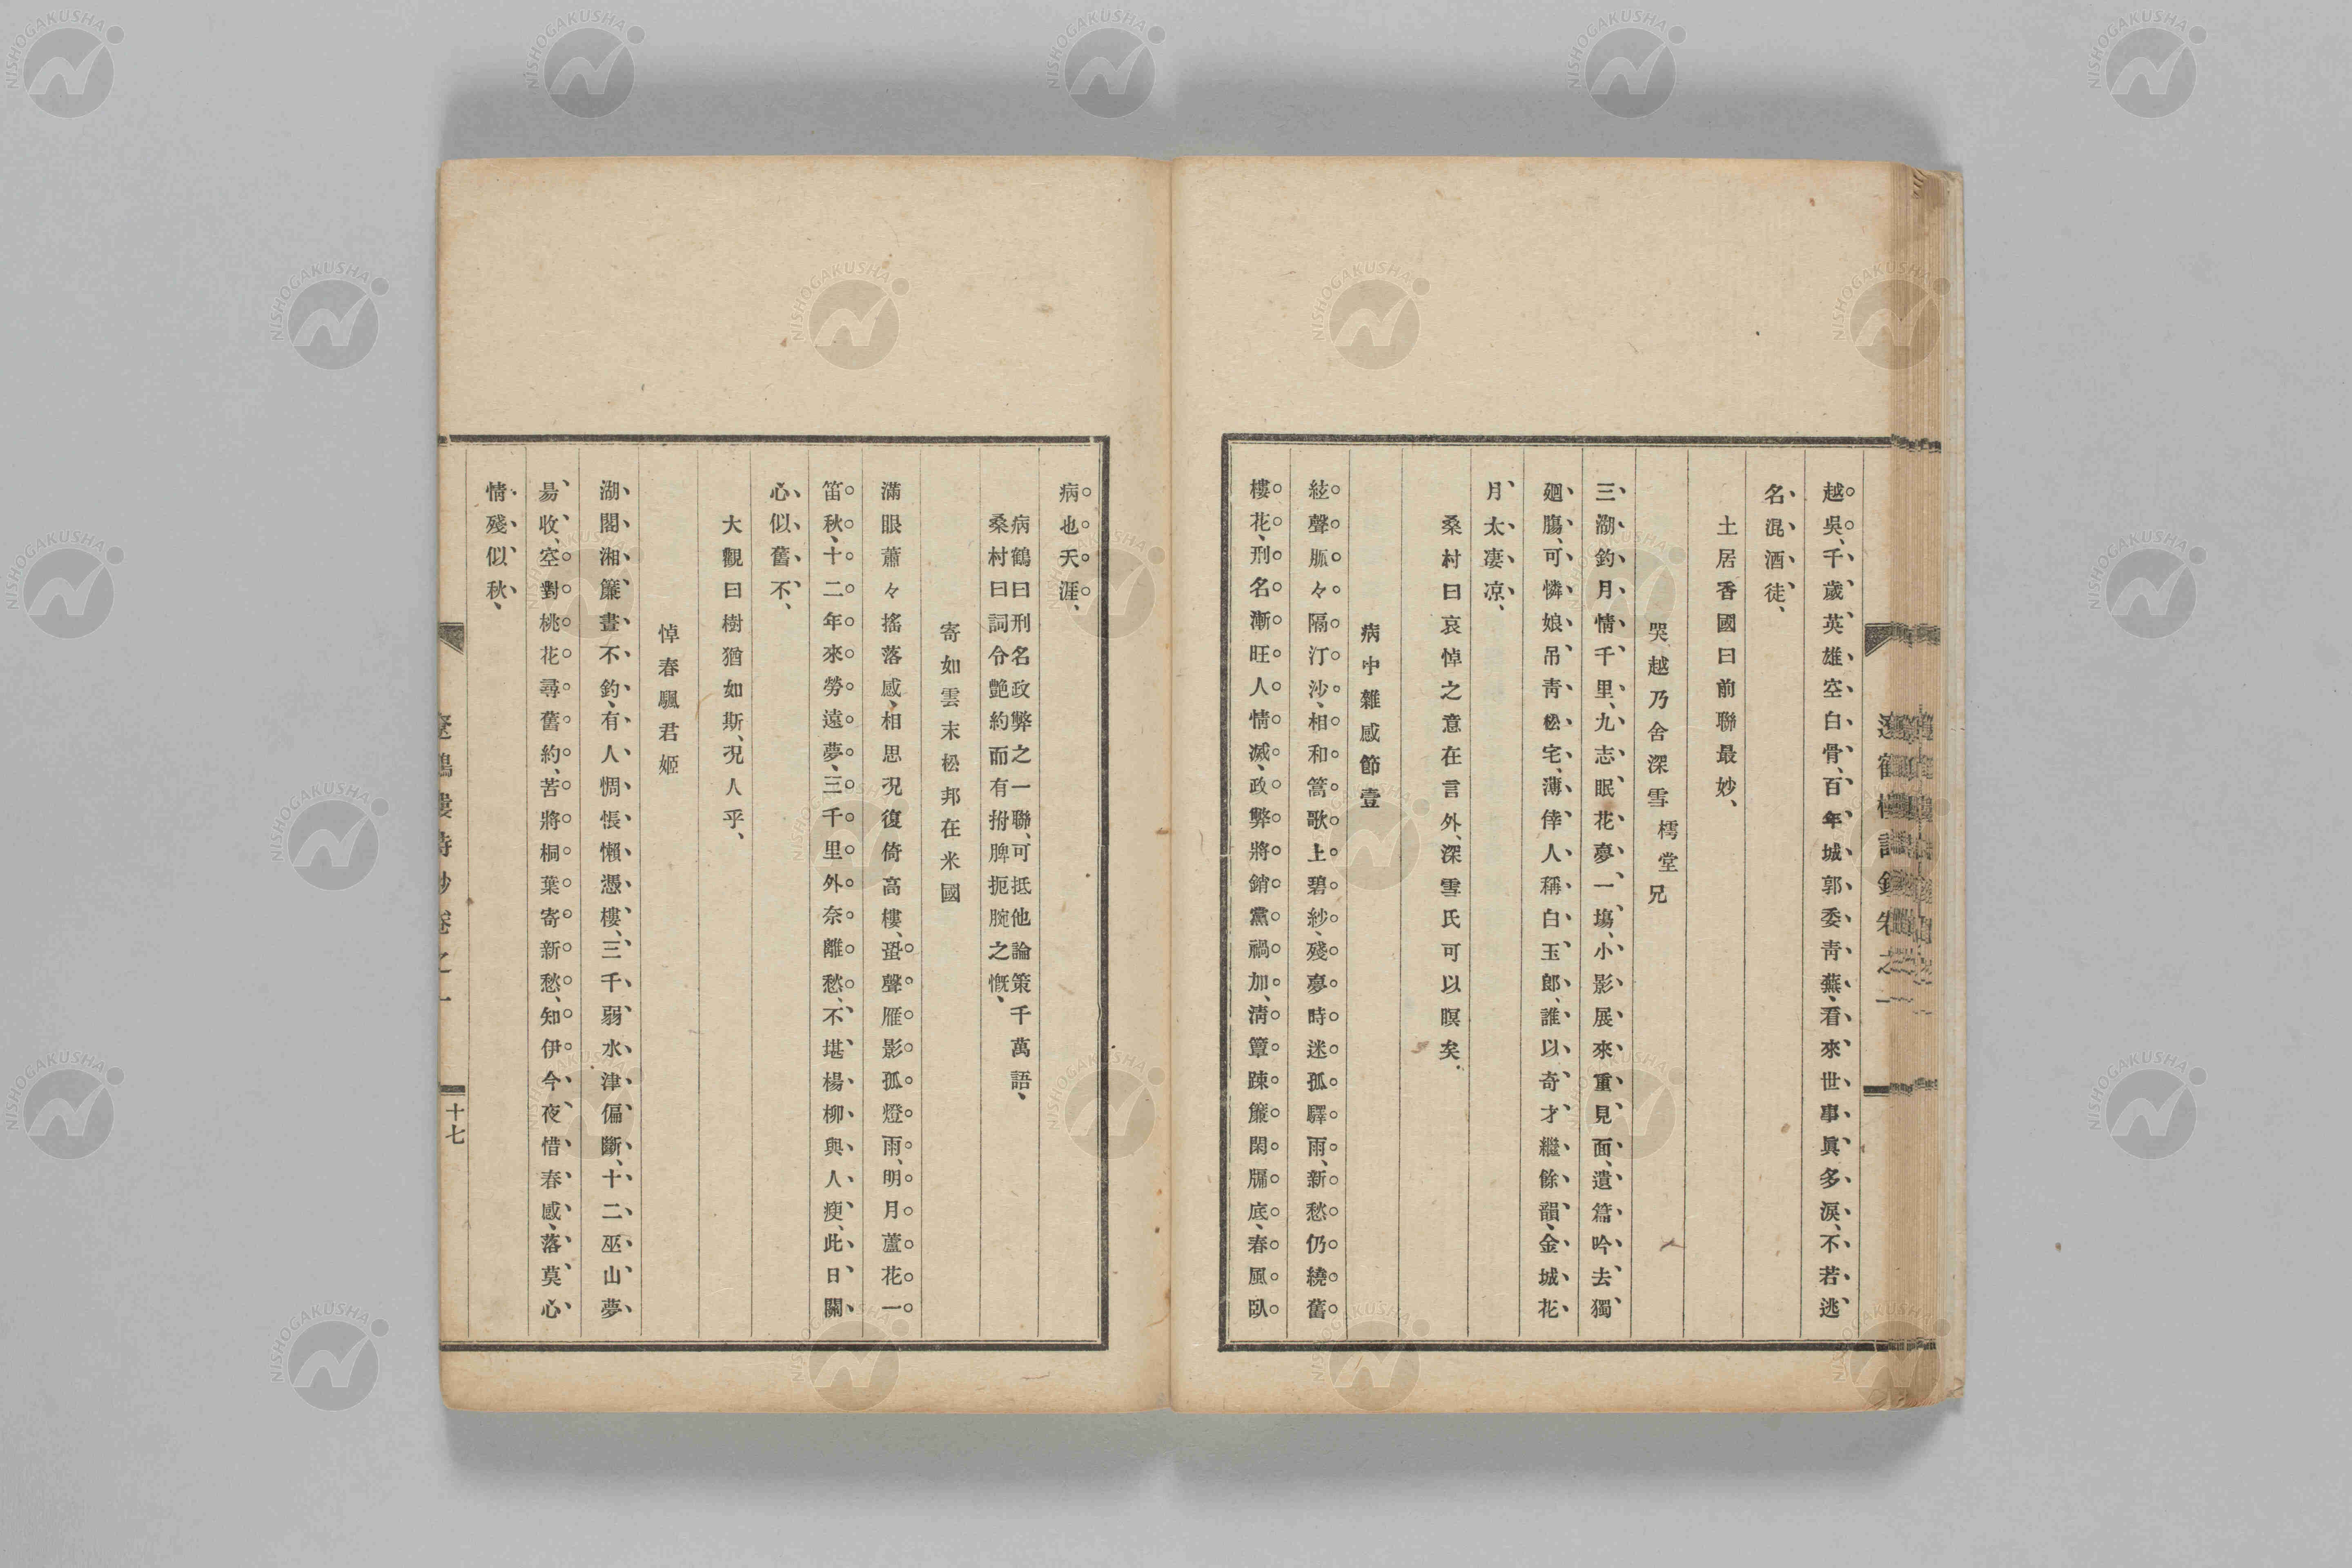 越吳、千歲英雄空白骨、百年城郭委靑蕪、看來世事眞多淚、不若逃
名混酒徒、
土居香國曰前聯最妙、
哭越乃舍深雪樗堂兄
三湖釣月情千里、九志眠花夢一塲、小影展來重見面、遺篇吟去獨
廻膓、可憐娘吊靑松宅、薄倖人稱白玉郎、誰以奇才繼餘韻、金城花
月太凄凉、
桑村曰哀悼之意在言外、深雪氏可以瞑矣、
病中雜感節壹
絃聲脈々隔汀沙、相和篙歌上碧紗、殘夢時迷孤驛雨、新愁仍繞舊
樓花、刑名漸旺人情滅、政弊將銷黨禍加、淸簟踈簾閑牖底、春風臥
病也天涯、
病鶴曰刑名政弊之一聯、可抵他論策千萬語、
桑村曰詞令艶約而有拊脾扼腕之慨、
寄如雲末松邦在米國
滿眼蕭々搖落感、相思况復倚高樓、蛩聲雁影孤燈雨、明月蘆花一
笛秋、十二年來勞遠夢、三千里外奈離愁、不堪楊柳與人瘦、此日關
心似舊不、
大觀曰樹猶如斯、况人乎、
悼春颿君姬
湖閣湘簾晝不釣、有人惆悵懶憑樓、三千弱水津偏斷、十二巫山夢
昜收、空對桃花尋舊約、苦將桐葉寄新愁、知伊今夜惜春感、落莫心
情殘似秋、
十七